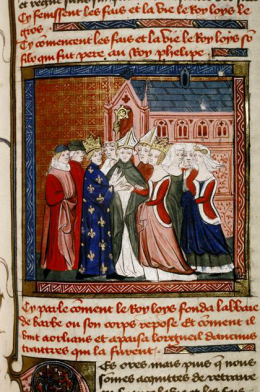 Cy fenissent les fais et la vie le Roy loys le
gros.
Cy comencent les fais et la vie le Roy loys so
filz qui fut pere, au Roy phelipe.
Cy parle coment le Roy loys fonda labbaie
de barbe ou son corps repose Et coment il
vint a orliens et apaisa lorgueil daucuns
autres qui la furent.
Es ores mais puis q nous
somes acquittes de retraire